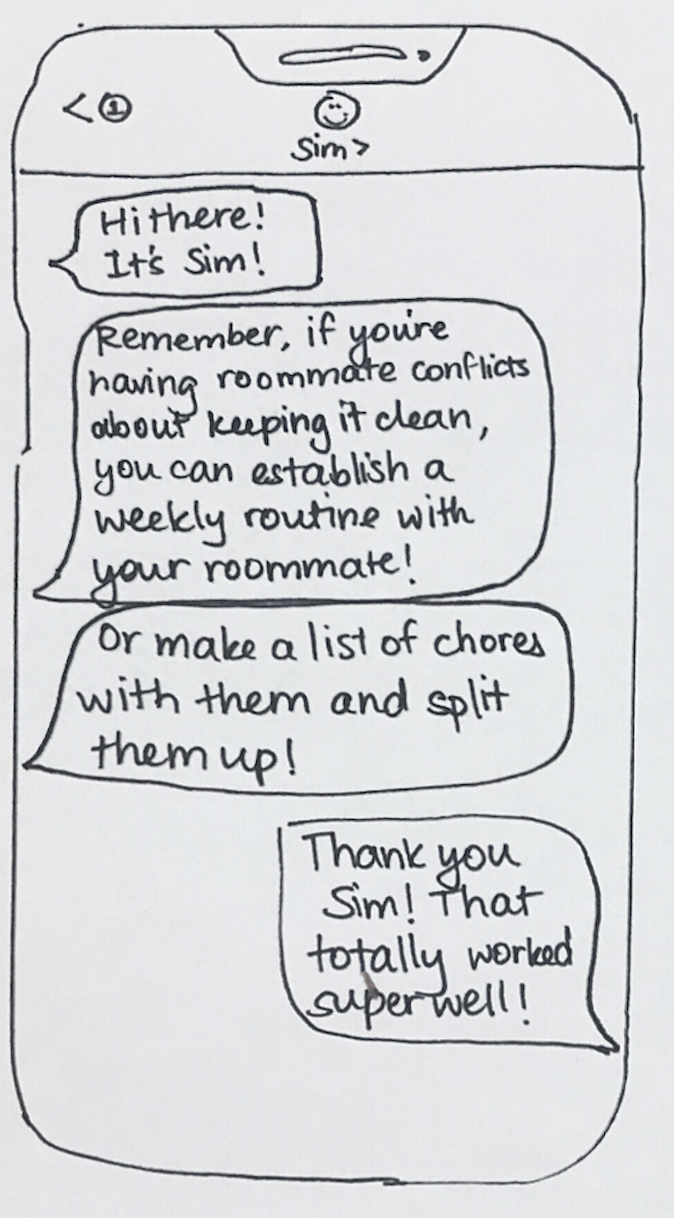 <①
Sim >
Hi there!
It's Sim!
Remember, if you're
having roommate conflicts
about keeping it clean,
you can establish a
weekly routine with
your roommate!
Or make a list of chores
with them and split
them up!
Thank you
Sim! That
totally worked
super well!